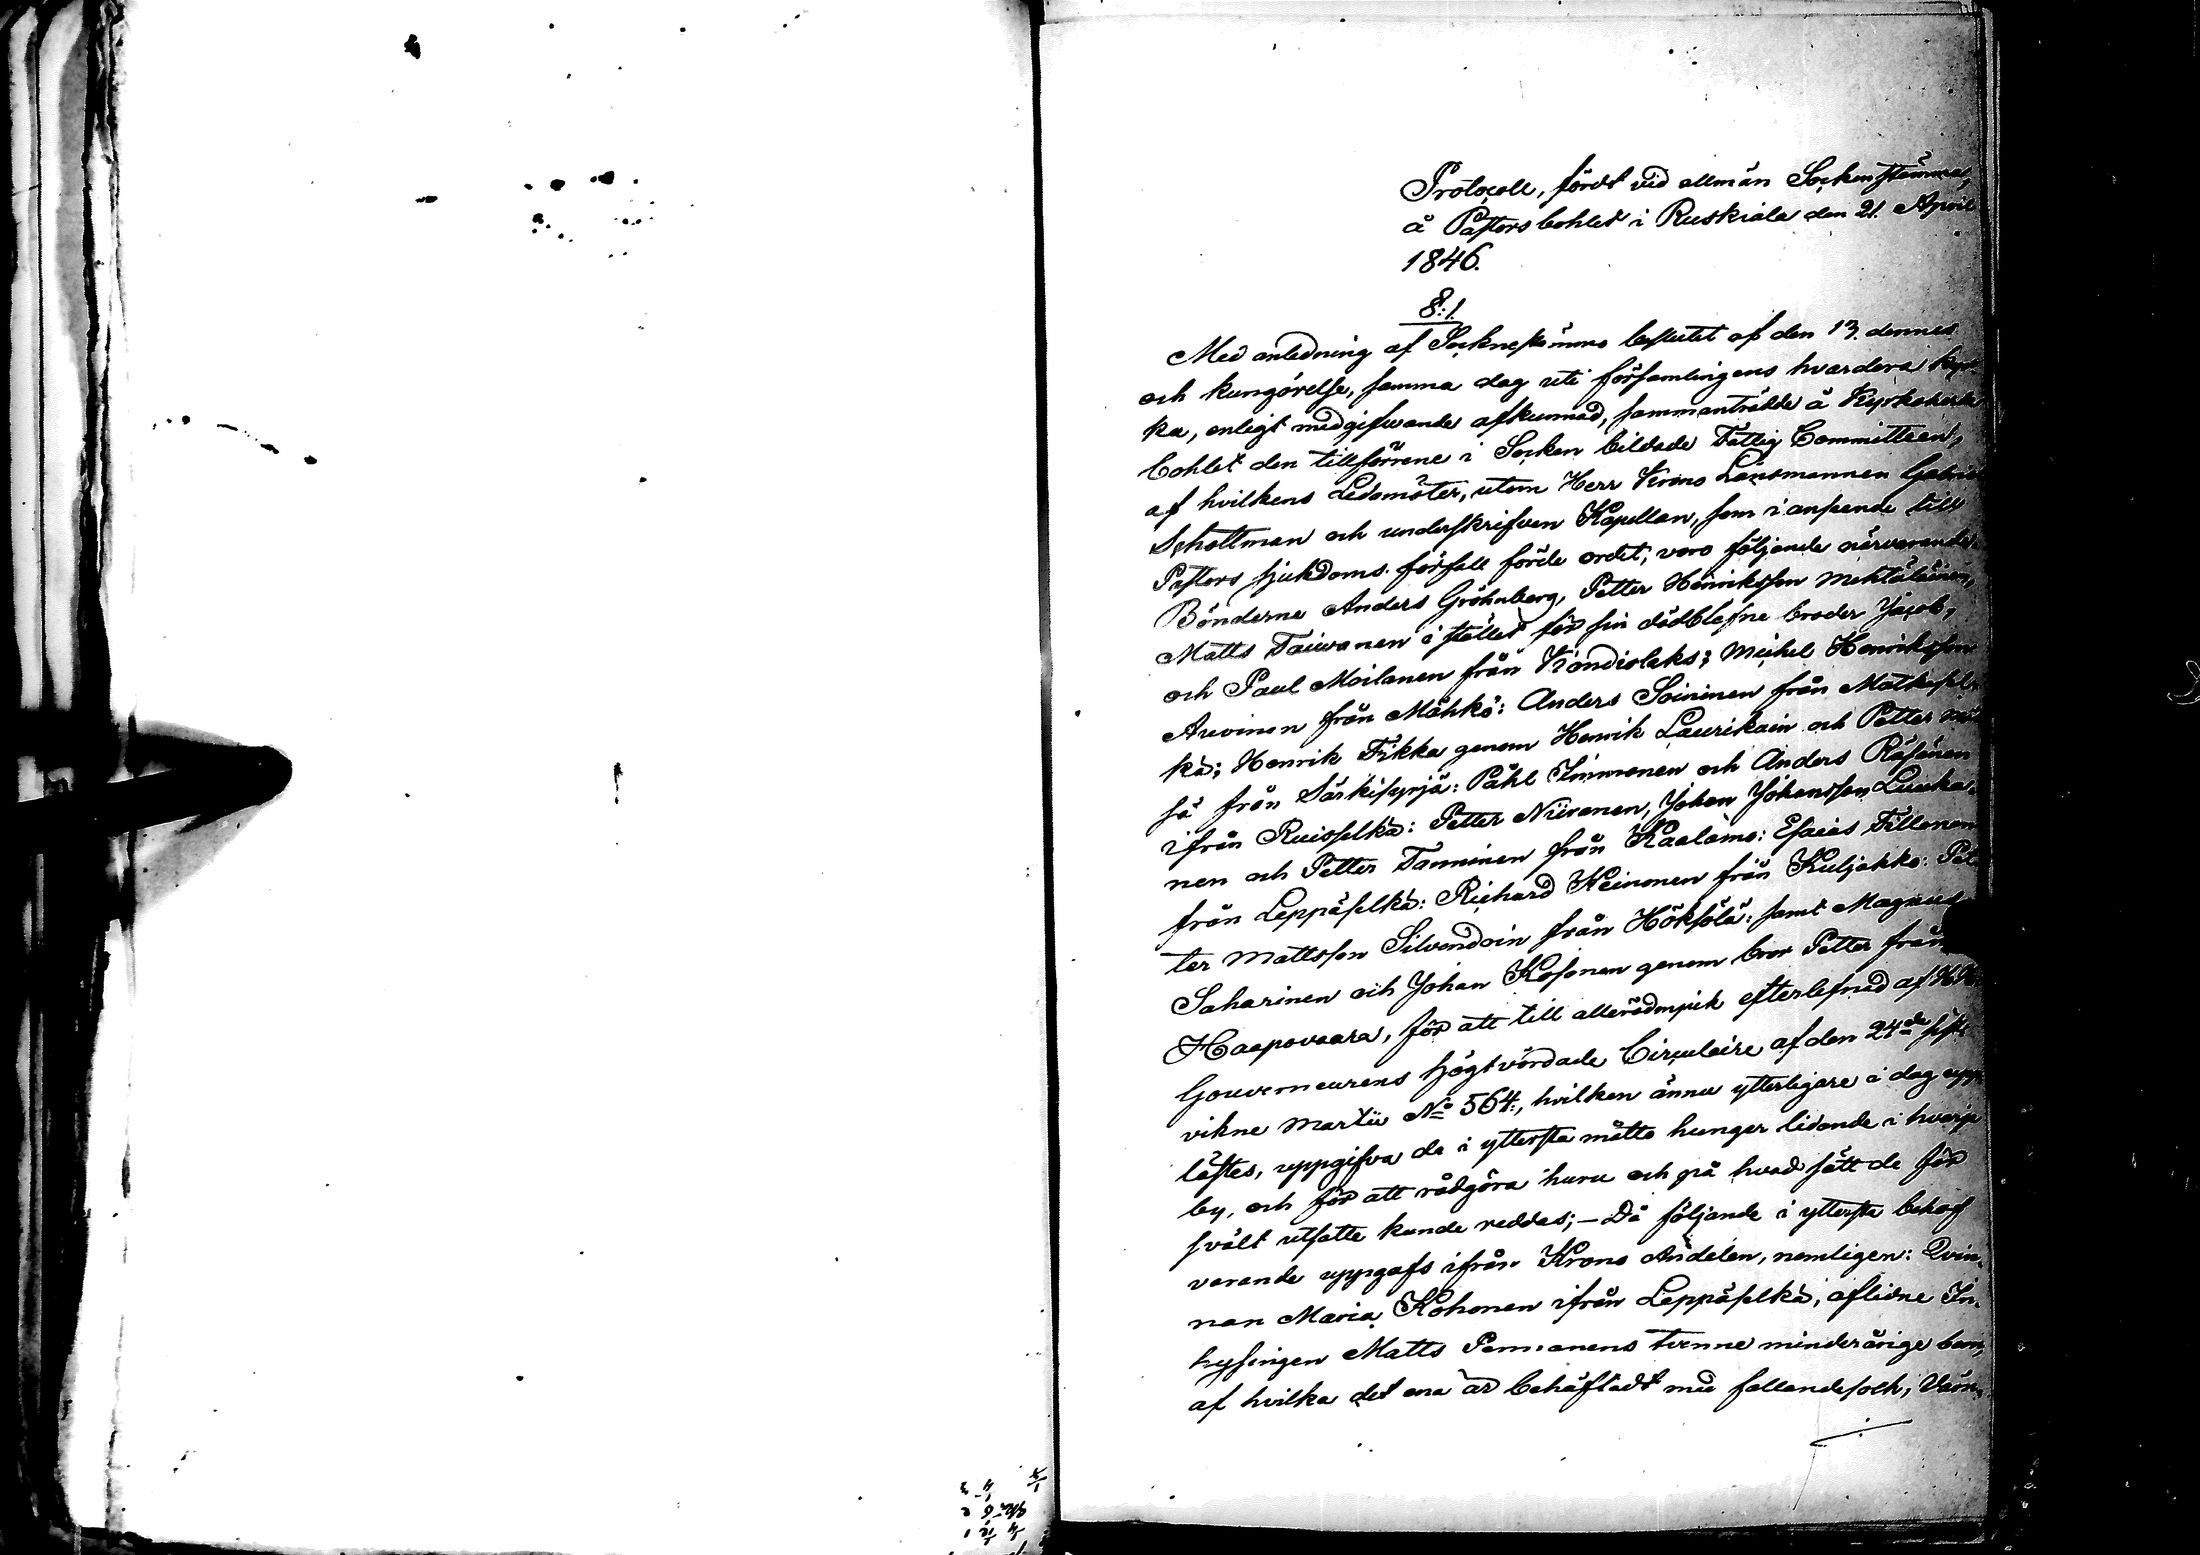 Protocoll, fördt vid allmän Sockenstämma,
å Pastorsbohlet i Ruskiala den 21. April
1846.
§:1.
Med anledning af Sockne stämmo beslutet af den 13. dennes
och kungörelse, samma dag uti församlingens hvardera kyr-
ka, enligt medgifvande afkunnad, sammanträdde å Kyrkoherde
bohlet den tillförrene i Socken bildade Fattig Committeen,
af hvilkens Ledamöter, utom Herr Krono Länsmannen Gabriel
Schottman och underskrifven Kapellan, som i anseende till
Pastors sjukdoms förfall förde ordet, voro följande närvarande:
Bönderne Anders Gröhnberg, Petter Henriksson Mehtäläinen,
Matts Taivanen i stället för sin dödblefne broder Jacob,
och Paul Moilanen från Kondiolaks; Michel Henriksson
Arvinen från Mähkö: Anders Soininen från Matkasel-
kä; Henrik Tikka genom Henrik Laurikain och Petter
sä från Särkisyrjä: Påhl Immonen och Anders Räsänen
ifrån Ruisselkä: Petter Niiranen, Johan Johansson Luuka-
nen och Petter Tanninen från Kaalamo: Esaias Tillonen
från Leppäselkä: Richard Keinonen från Kuljakko: Pet-
ter Mattsson Silvendoin från Höksölä: samt Magnus
Saharinen och Johan Kosonen genom bror Petter från
Haapovaara, för att till allerödmjuk efterlefnad af H.
Gouverneurens högtvördade Circulaire af den 24de sist-
vikne Martii No 564:, hvilken ännu ytterligare i dag upp-
lästes, uppgifva de i yttersta måtto hunger lidande i hvarje
by, och för att rådgöra huru och på hvad sätt de för
svält utsatte kunde reddas; – Då följande i yttersta behof
varande uppgafs ifrån Krono Andelen, nemligen: Qvin-
nan Maria Kohonen ifrån Leppäselkä; aflidne In-
hysingen Matts Pennanens tvenne minderårige barn,
af hvilka det ena är behäftadt med fallandesoth,